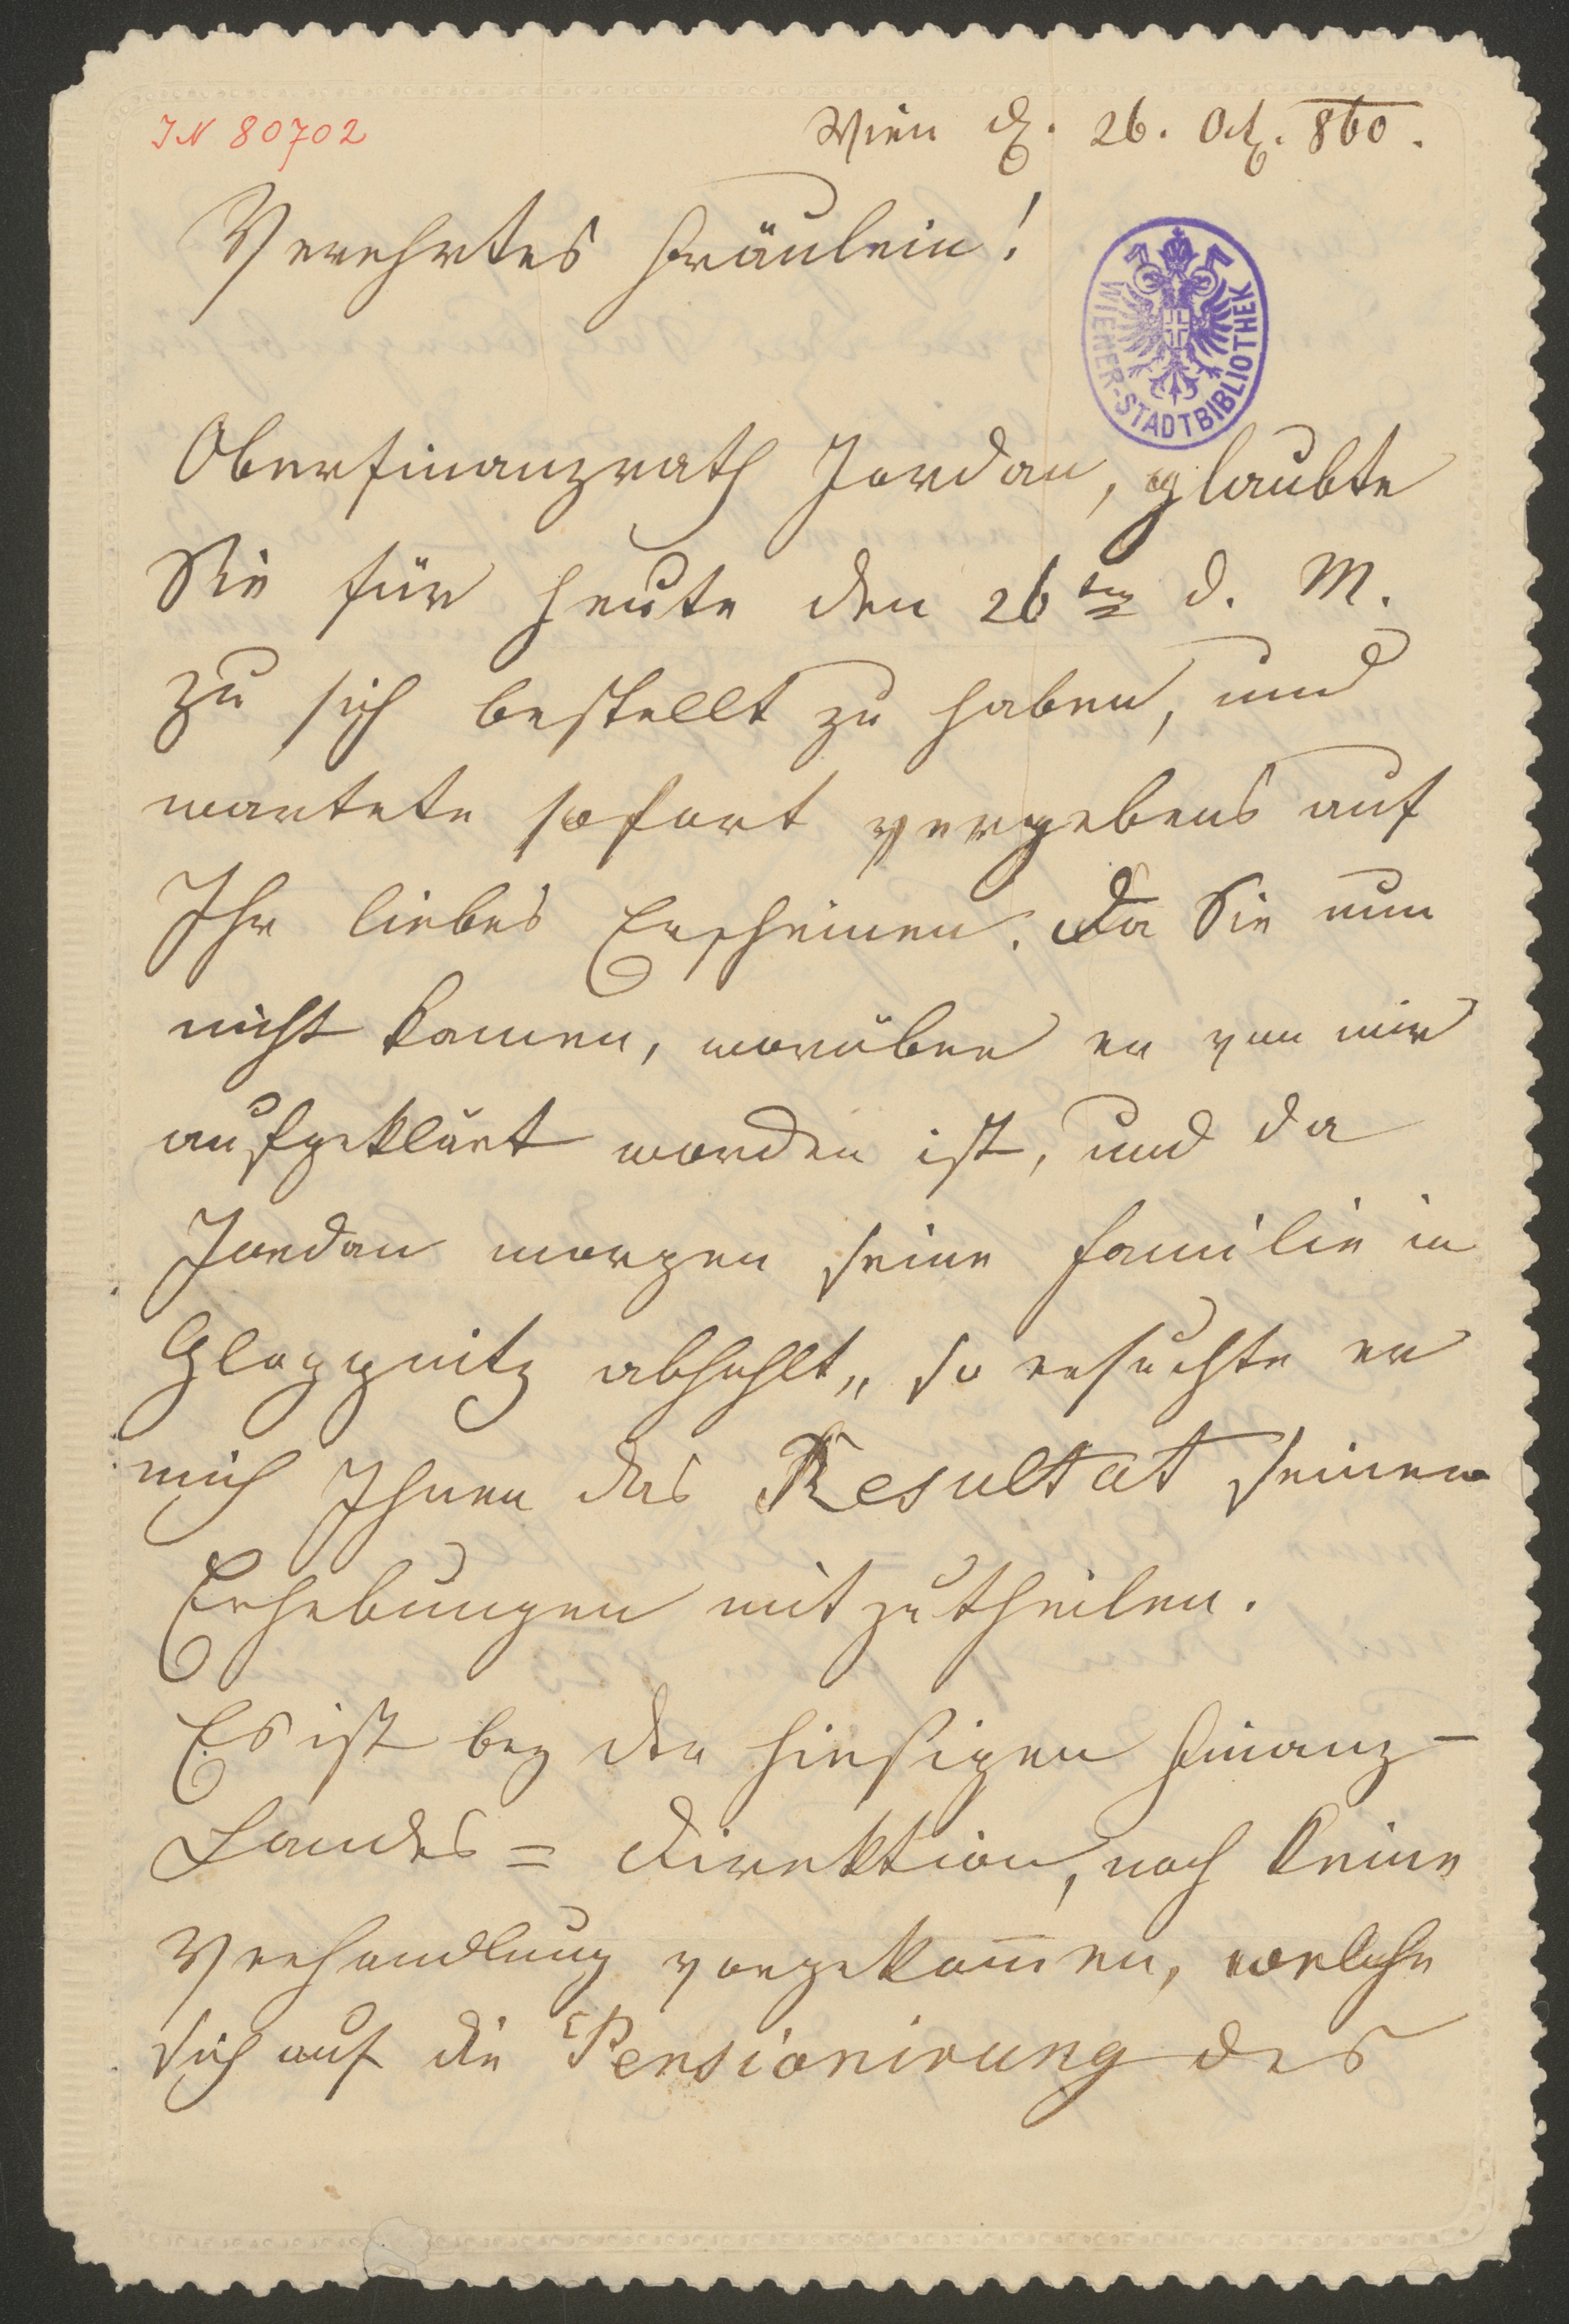 IN 80702
Wien d. 26. Okt. 860.
Verehrtes Fräulein!
WIENER-STADTBIBLIOTHEK
Oberfinanzrath Jordan, glaubte
Sie für heute den 26ten d. M.
zu sich bestellt zu haben, und
wartete sofort vergebens auf
Ihr liebes Erscheinen. Da Sie nun
nicht kamen, worüber er von mir
aufgeklärt worden ist, und da
Jordan morgen seine Familie in
Gloggnitz abhohlt, so ersuchte er
mich Ihnen das Resultat seiner
Erhebungen mitzutheilen.
Es ist bey der hiesigen Finanz-
Landes=Direktion, noch keine
Verhandlung vorgekom̅en, welche
sich auf die Pensionirung des